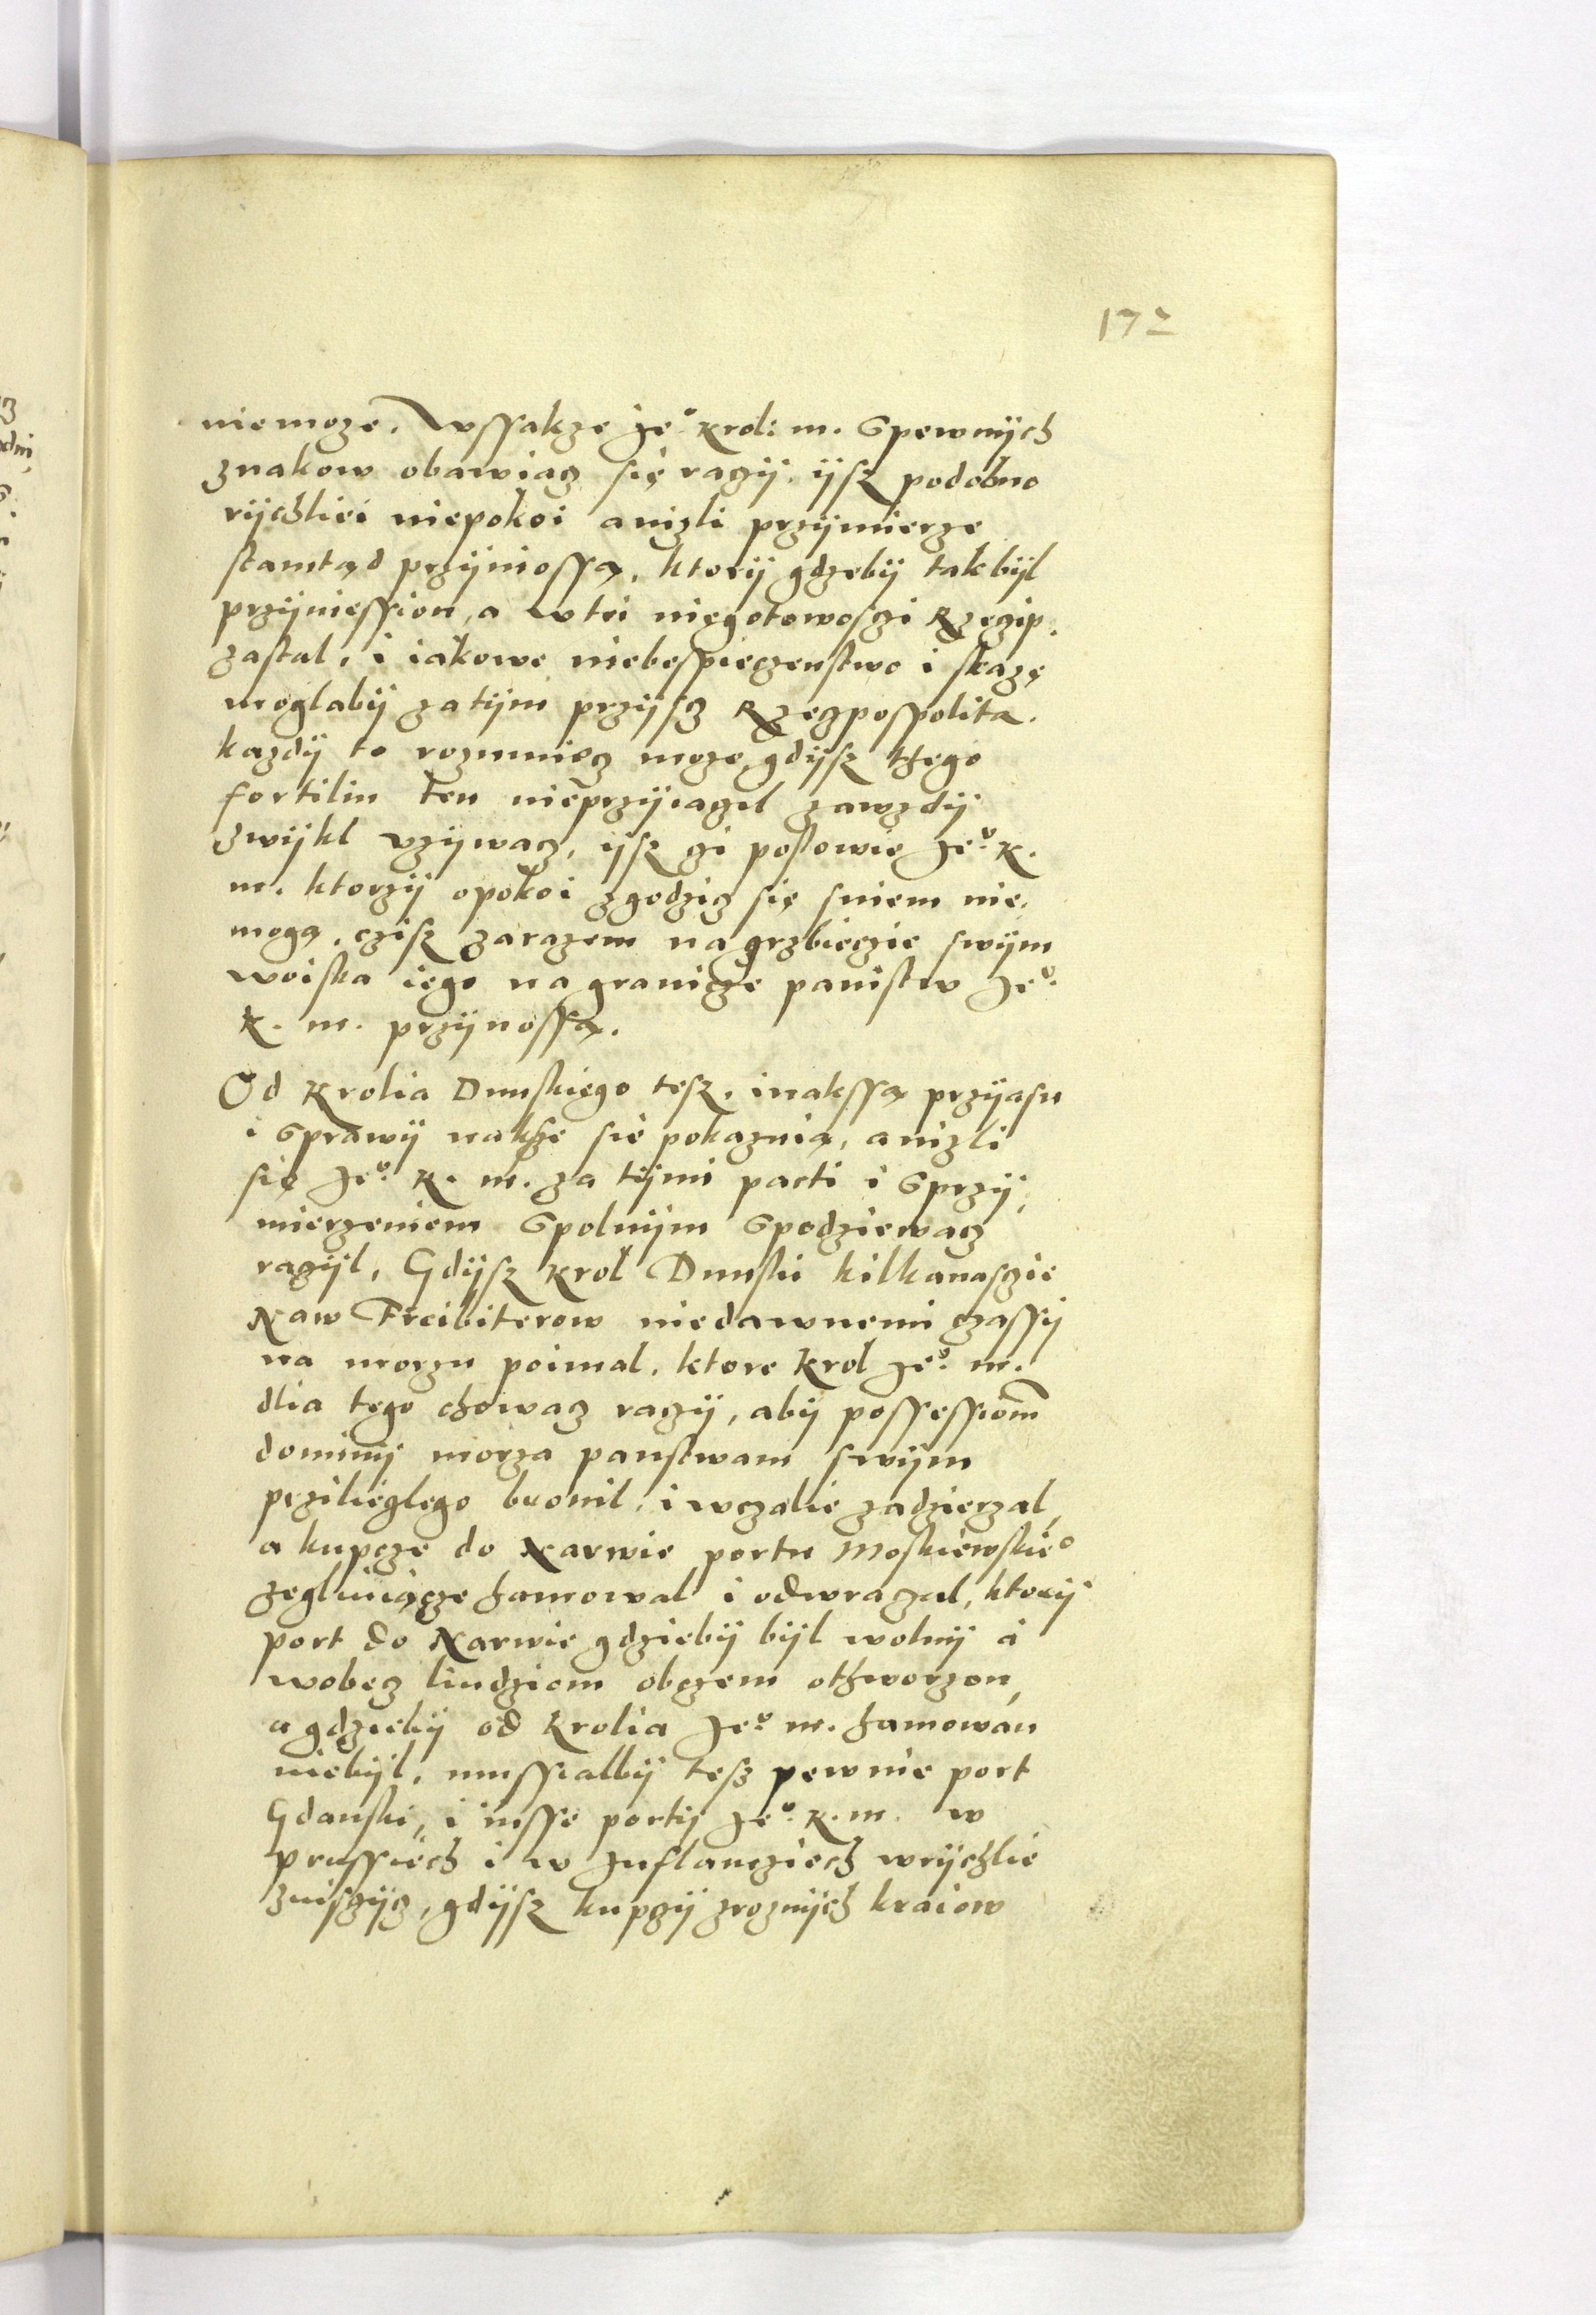 172
niemoze. Wssakze Je° krol: m. Spewnijch
znakow obawiacz się raczij, ijsz podobno
rijchliei niepokoi anizli przijmierze
stamtąd przijniossą, ktorij gdzebij tak bijl
przijniession, a wtei niegotowosczi Rzeczip.
zastal, i iakowe niebespieczenstwo i skazę
moglabij zatijm przijscz Rzeczpospolita.
kazdij to rozumiecz moze, gdijsz thego
fortilin ten nieprzijiaczel zawzdij
zwijkl vzijwacz, ijsz czi poslowie Je°. K.
m. ktorzij opokoi zgodzicz się sniem nie
mogą, czisz zarazem na grzbieczie swijm
woiska iego na granicze panistw Je°.
K. m. przijnossą.
Od Krolia Dunskiego tesz, inakssą przijasn
i Sprawij naksze się pokazuią, anizli
się Je°. K. m. za tijmi pacti i Sprzij,
mierzeniem Spolnijm Spodziewacz
raczijl, Gdijsz Krol Dunski kilkanasczie
Naw Freibiterow niedawnemi czassij
na morzu poimal, ktore Krol Je°. m.
dlia tego chowacz raczij, abij possessiom
dominij morza panstwam swijm
przilieglego bronil, i wczalie zadzierzal,
a kupcze do Narwie portu Moskiewskie°
zegluiącze hamowal i odwraczal, ktorij
port do Narwie gdziebij bijl wolnij a
wobecz liudziom obczem othworzon,
a gdziebij od Krolia Je°. m. hamowan
niebijl, mussialbij tesz pewnie port
Gdanski, i insse portij Je°. K. m. w
Prussiech i w Inflancziech wrijchlie
zniszczijcz, gdijsz kupczij zroznijch kraiow